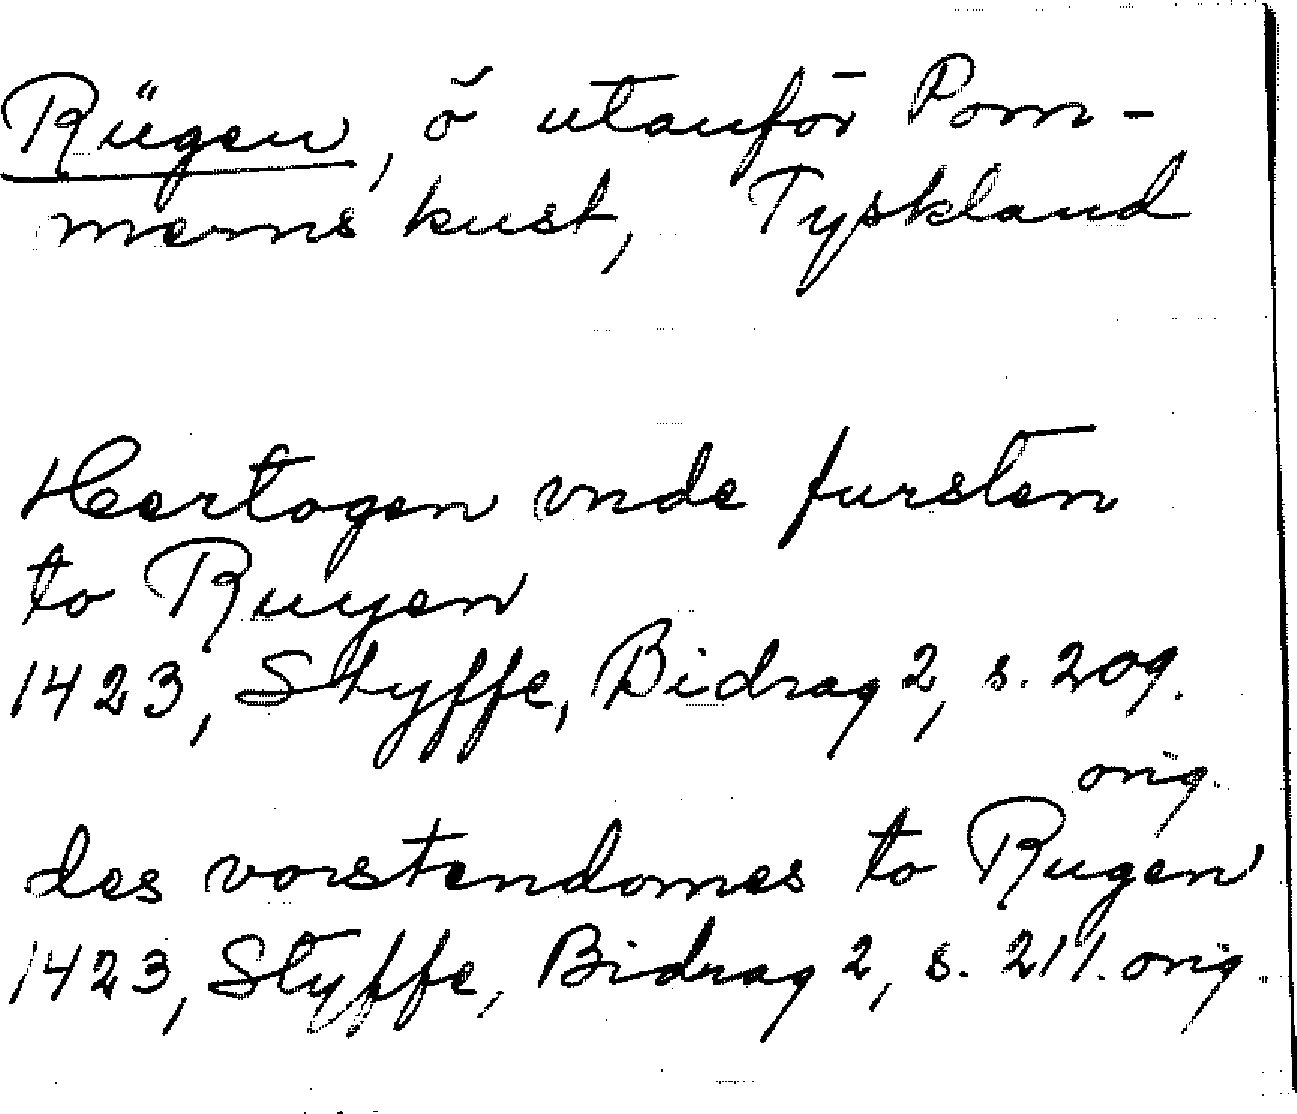 Rügen, ö utanför Pom-
merns kust, Tyskland
Heertogen vnde fursten
to Ruyen
1423, Styffe, Bidrag 2, s. 209.
orig.
des vorstendomes to Rugen
1423, Styffe, Bidrag 2, s. 211. orig.